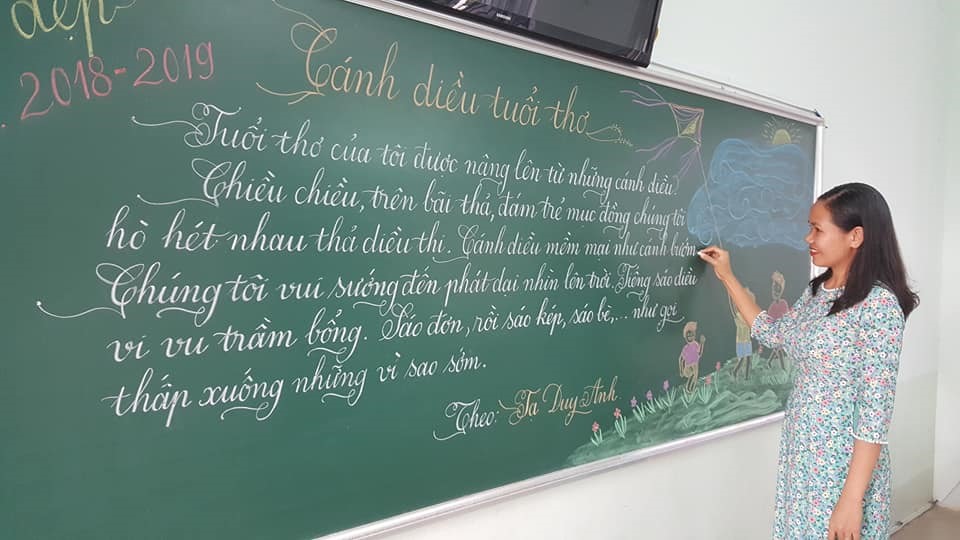 đẹp
2018-2019
Cánh diều tuổi thơ
Tuổi thơ của tôi được nâng lên từ những cánh diều.
Chiều chiều, trên bãi thả, đám trẻ mục đồng chúng tôi
hò hét nhau thả diều thi. Cánh diều mềm mại như cánh bướm.
Chúng tôi vui sướng đến phát dại nhìn lên trời. Tiếng sáo diều
vi vu trầm bổng. Sáo đơn, rồi sáo kép, sáo bè,... như gọi
thấp xuống những vì sao sớm.
Theo: Tạ Duy Anh
SAMSUNG